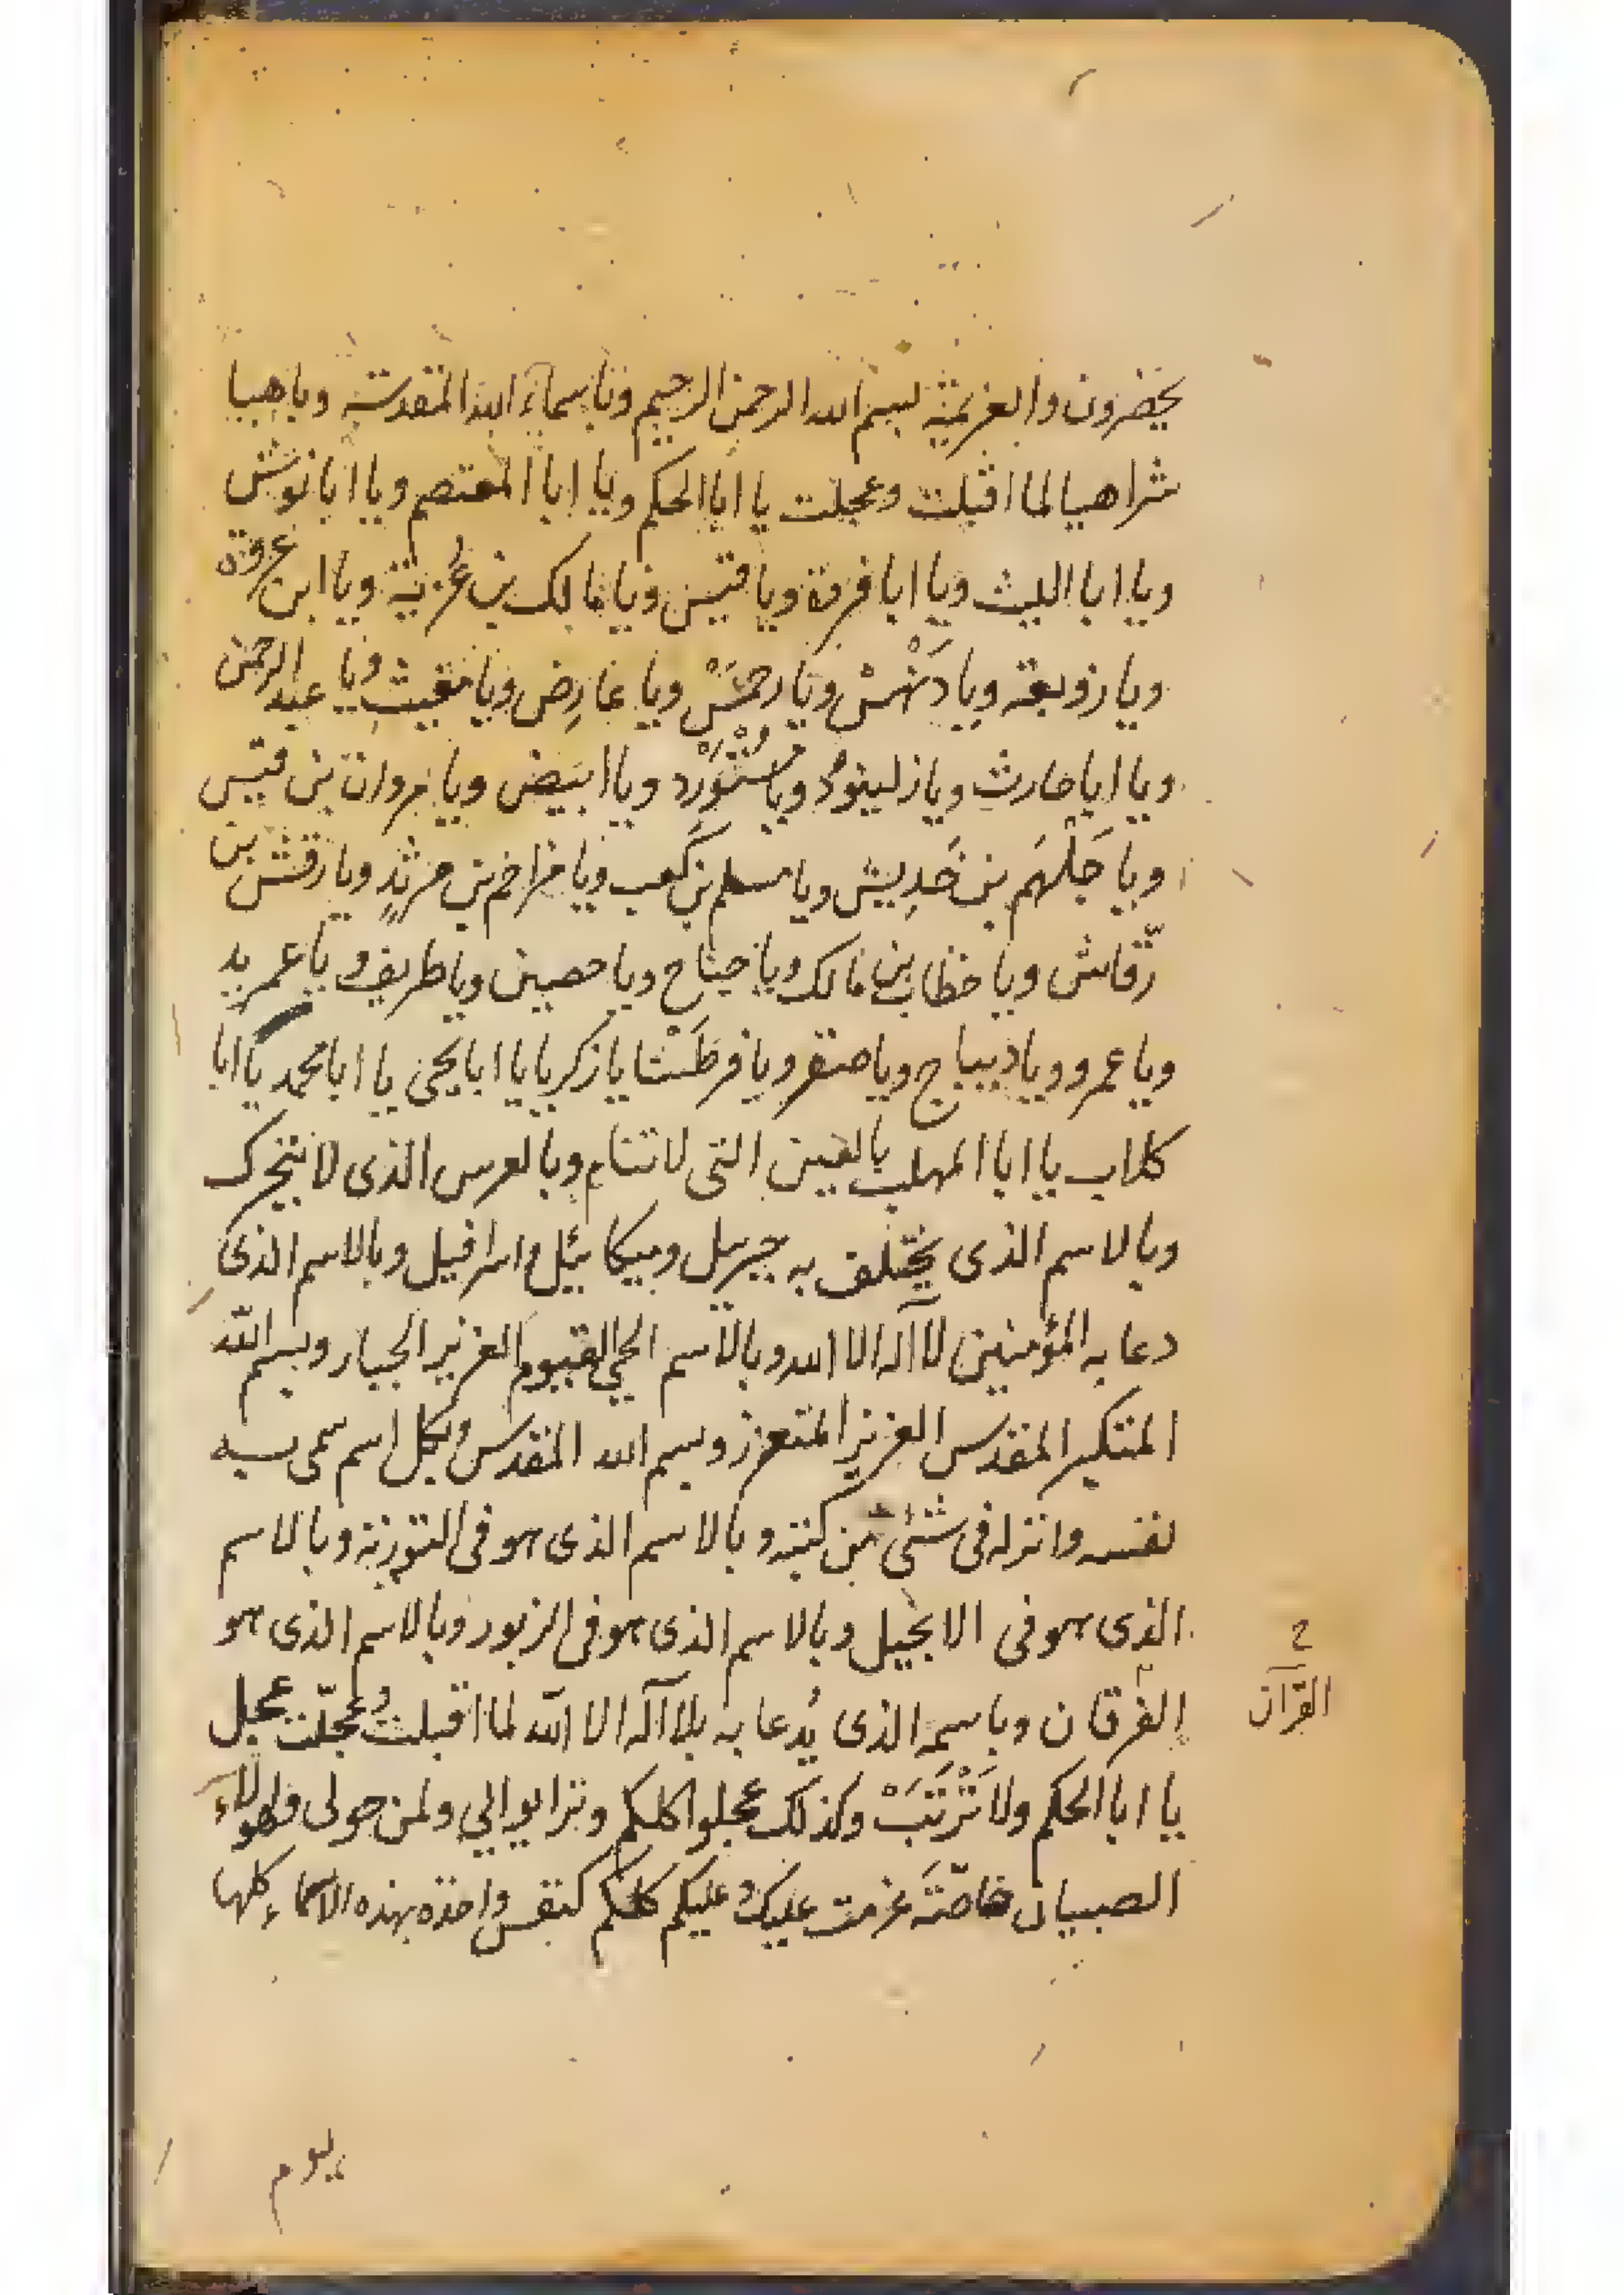 يحضرون والعزيمة بسم الله الرحمن الرحيم وباسماء الله المقدسة وباهيا
شراهيا لما اقبلت وعجلت يا ابا الحكم ويا ابا المعتصم ويا ابا نوش
ويا ابا الليث ويا ابا فروة ويا قيس ويا مالك بن عزية ويا ابن عروة
ويا زوبعة ويا دَنْهَشْ ويا رحمَسْ ويا عارِض ويا مغيث ويا عبد الرحمن
ويا ابا حارث ويا زلينود ويا مُسْتَوْرَد ويا ابيَض ويا مروان بن قيس
ويا جَلْهَم بن خَدِيش ويا مسلم بن كعب ويا مزاحم بن مرثدٍ ويا رقش بن
رّقاش ويا خطاب بن مالك ويا جناح ويا حصين ويا طريف ويا عمر يد
ويا عمرو ويا ديباج ويا صقر ويا قرطَسْتا يا زكريا يا ابا يحيى يا ابا محمد يا ابا
كلاب يا ابا المهلب بالعين التى لا تنام وبالعرس الذى لا يتحرك
وبالاسم الذى يختلف به جبريل وميكائيل واسرافيل وبالاسم الذى
دعا به المؤمنين لا اله الا الله وبالاسم الحي القيوم العزيز الجبار وبسم الله
المتكبر المقدس العزيز المتعزز وبسم الله المقدس وبكل اسم سمى به
نفسه وانزله فى شئى من كتبه وبالاسم الذى هو فى التورية وبالاسم
الذى هو فى الانجيل وبالاسم الذى هو فى الزبور وبالاسم الذى هو
الفرقان وباسمه الذى يُدعا به بلا اله الا الله لما اقبلت وعجّلت عجل
القرآن
يا ابا الحكم ولا تَتْرَتَبْ وكذلك عجلوا كلكم وترايوا الي ولمن حولى ولهولاء
الصبيان خاصّةَ عزمت عليك وعليكم كلكم كنفس واحدة بهذه الاسماء كلها
يوم